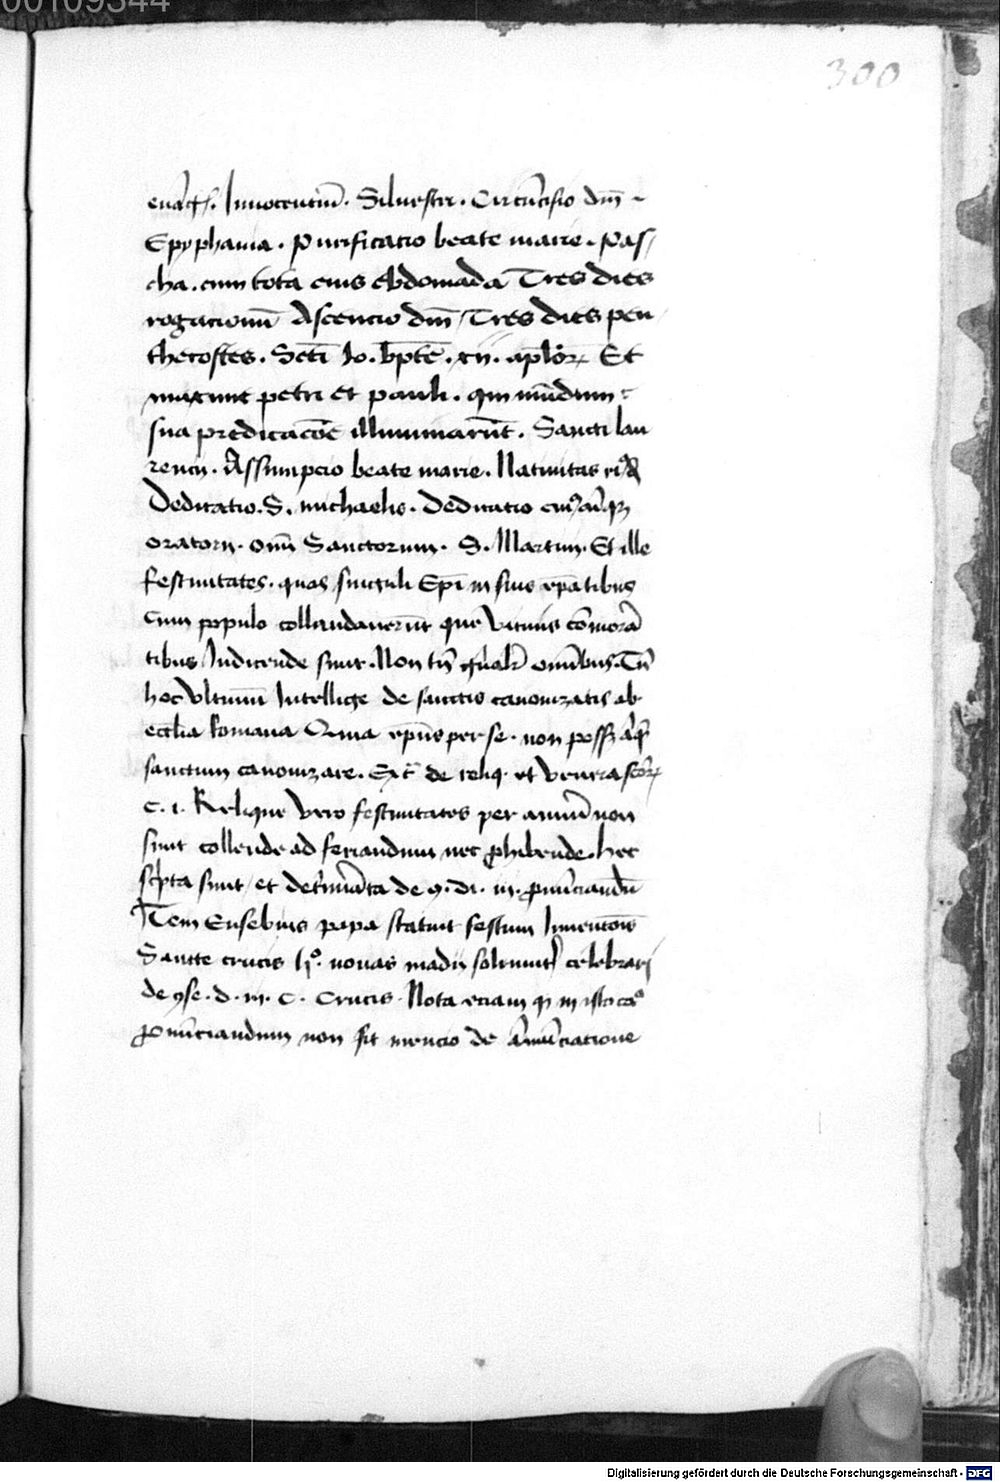 00109344
300
Innocentiū. Siluester. Circūcisio dnī
Epyphania. Purificatio beate marie. Pas/
cha. cum tota eius ebdomada Tres dies
rogacionū Ascencio dnī / Tres dies pen
thecostes. Scti Io. bpte. xii. aplor Et
maxime petri et pauli. qui mūdum
sua predicacōe illuminarūt. Sancti lau
rencii. Assumpcio beate marie. Natiuitas
Dedicatio. S. michaelis. Dedicatio
oratorii. oīm Sanctorum. S. Martini. Et ille
festiuitates. quas singuli Epī in suis epatibus
cum populo collaudauerūt que vicinis cōmorā
tibus Indicende sunt. Non tn̄ gñalr omībus. Tn̄
hoc vltimū Intellige de sanctis canonizatis ab
ecclia Romana Quia epūs per se. non possz
sanctum canonizare. Ext de reliq. et venera scōr
C. 1. Relique vero festiuitates per annū non
sunt collende ad feriandum nec phibende. hec
scpta sunt / et detminata de 9. di. iii. pnūciandū
Item Eusebius papa statuit festum Inuencōis
Sancte crucis nonas madii celebrari
de 9se. d. iii. C. Crucis. Nota eciam q in isto ca°
Pnūciandum non fit mencio de Annūciatione
Digitalisierung gefördert durch die Deutsche Forschungsgemeinschaft - DFG